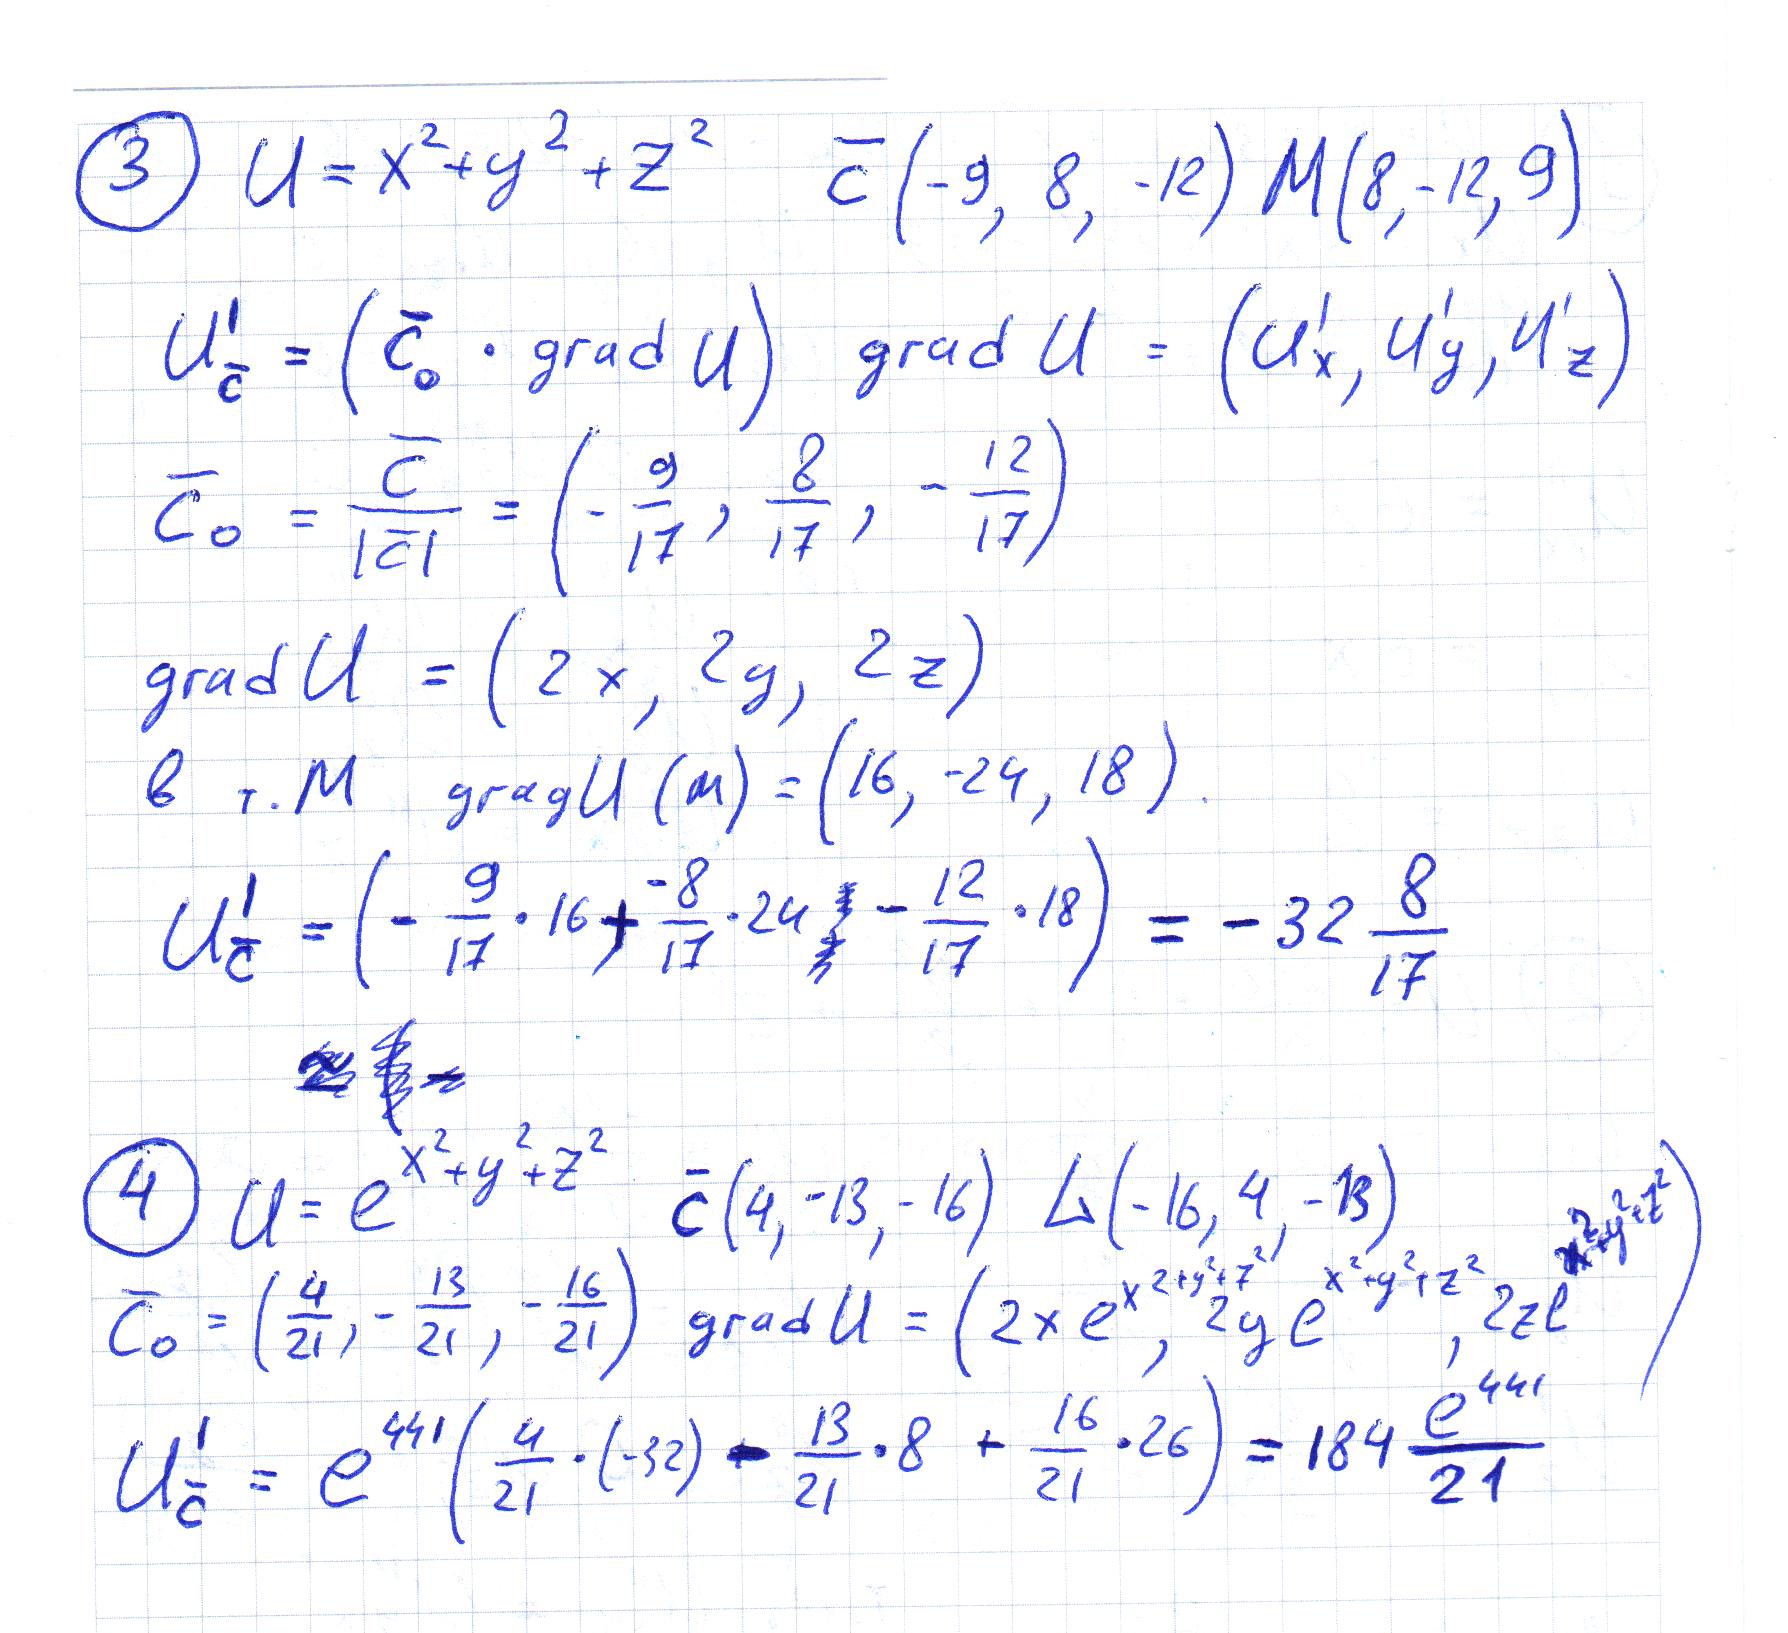 3 U = x² + y² + z² c̄ (-9, 8, -12) M(8, -12, 9)
U'c̄ = (c̄₀ · grad U) grad U = (U'x, U'y, U'z)
c̄₀ = c̄/|c̄| = (- 9/17, 8/17, - 12/17)
grad U = (2x, 2y, 2z)
в т. M gragU (м) = (16, -24, 18).
U'c̄ = (- 9/17 · 16 + -8/17 · 24 - 12/17 · 18) = -32 8/17
4 U = e^(x²+y²+z²) c̄ (4, -13, -16) L(-16, 4, -13)
c̄₀ = (4/21, - 13/21, - 16/21) grad U = (2x e^(x²+y²+z²), 2y e^(x²+y²+z²), 2z e^(x²+y²+z²))
U'c̄ = e^441 (4/21 · (-32) - 13/21 · 8 + 16/21 · 26) = 184 e^441/21